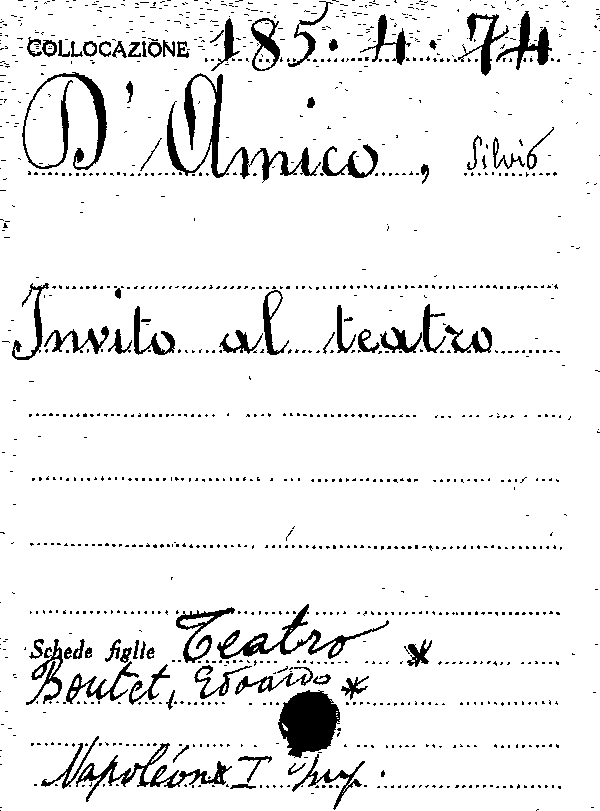 COLLOCAZIONE 185. 4. 74
D'Amico, Silvio
Invito al teatro
Schede figlie Teatro *
Boutet, Edoardo *
Napoléon I Imp.